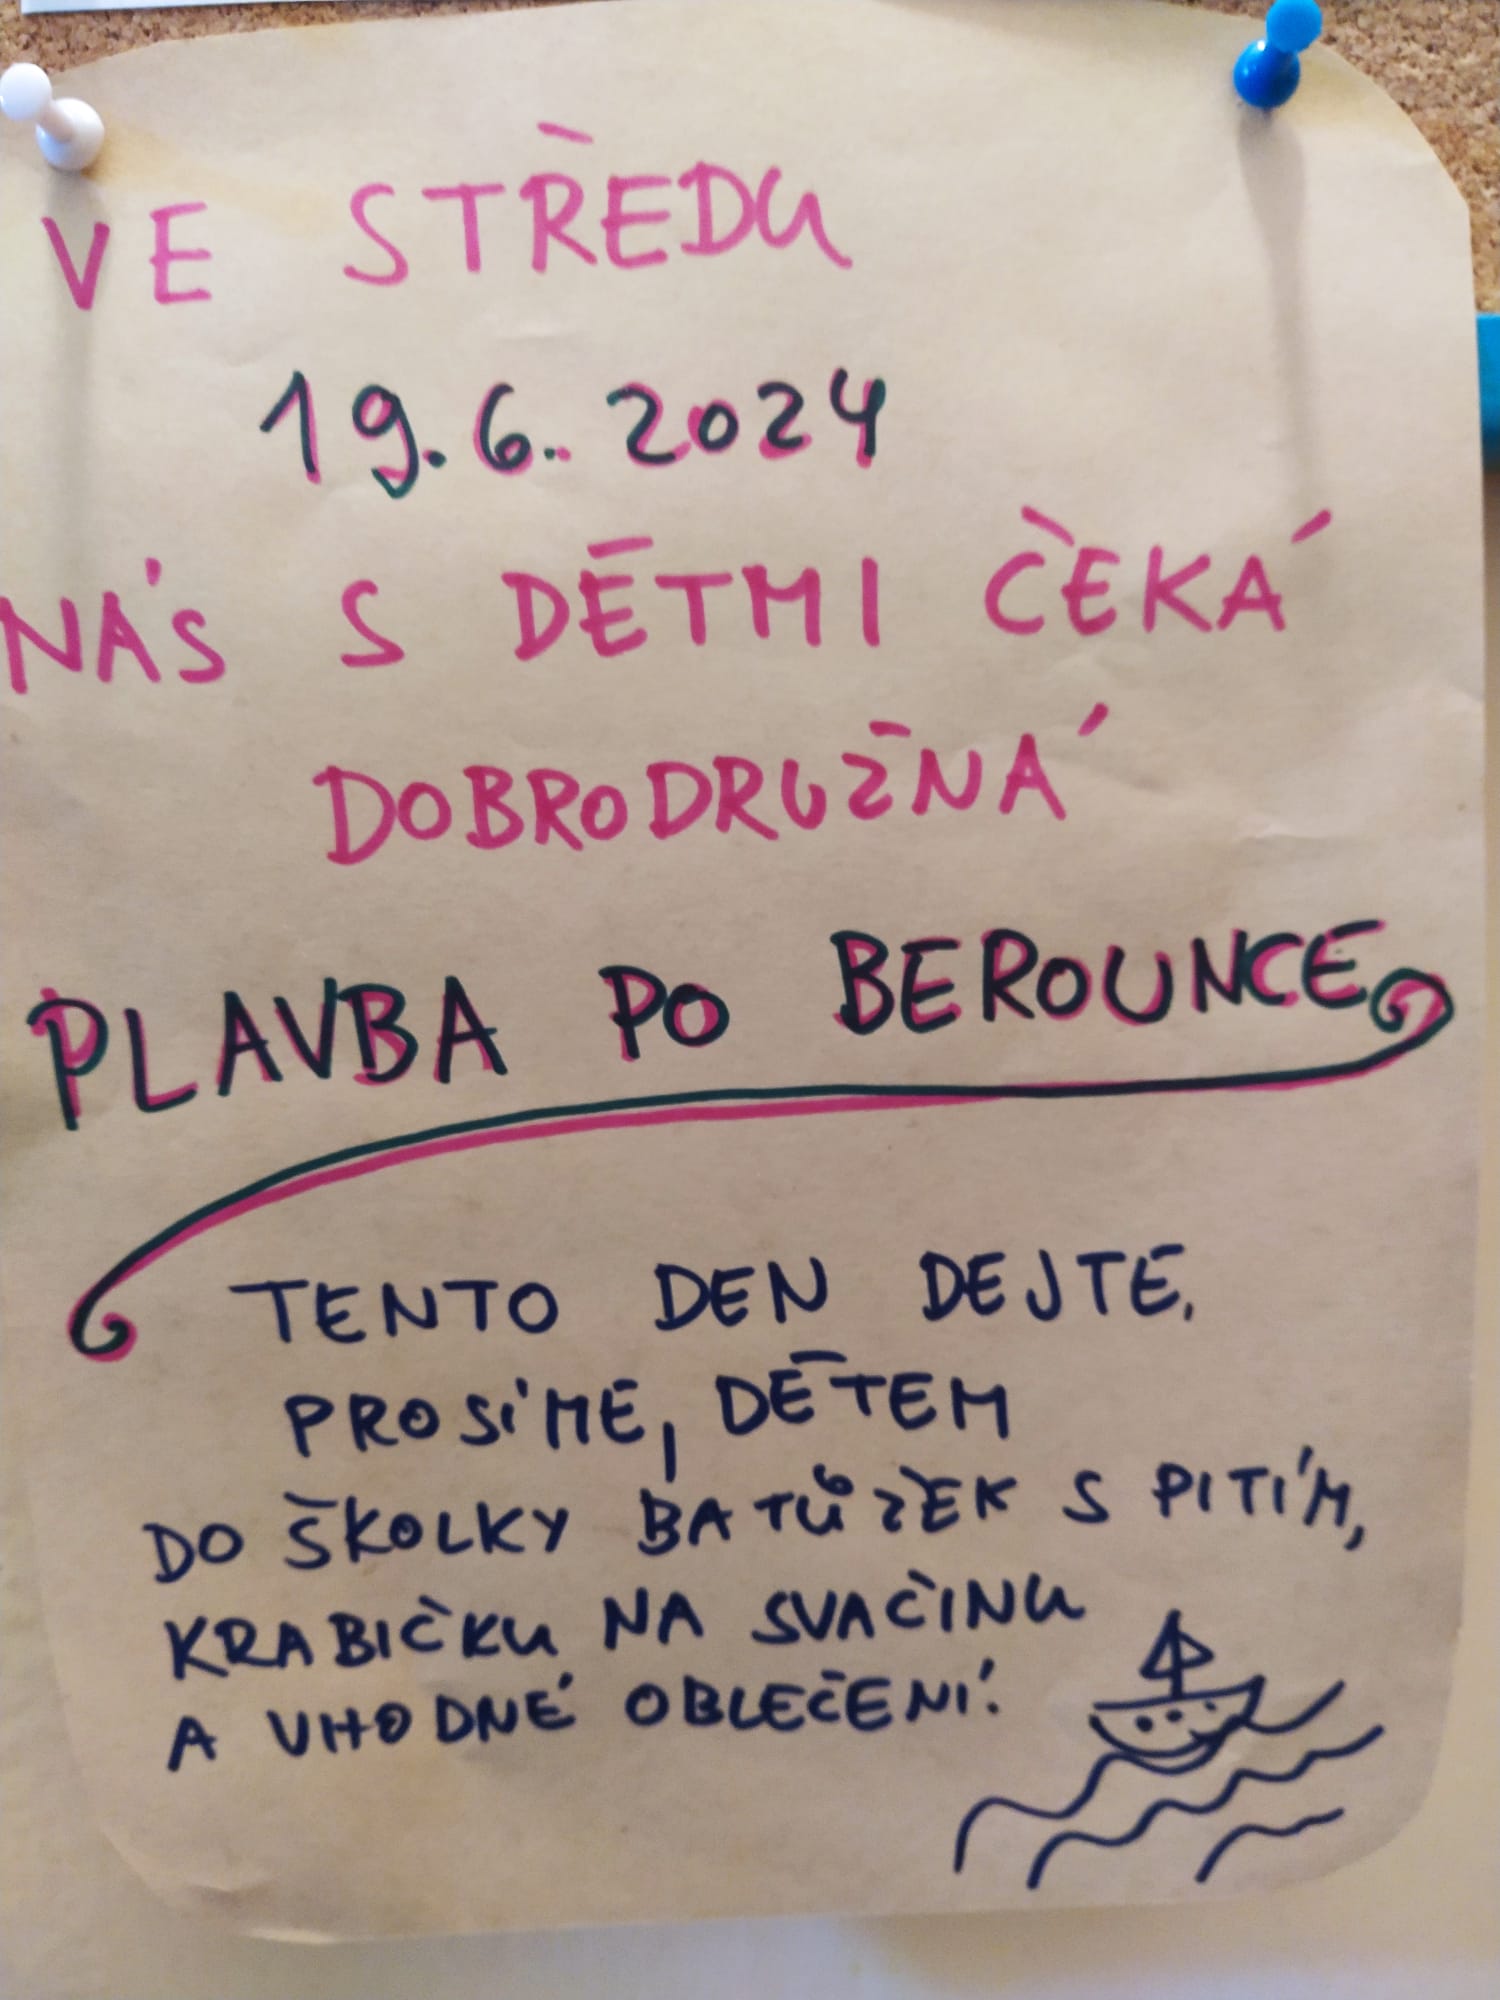 VE STŘEDU
19.6. 2024
NÁS S DĚTMI ČEKÁ
DOBRODRUŽNÁ
PLAVBA PO BEROUNCE
TENTO DEN DEJTE,
PROSÍME, DĚTEM
DO ŠKOLKY BATŮŽEK S PITÍM,
KRABIČKU NA SVAČINU
A VHODNÉ OBLEČENÍ!